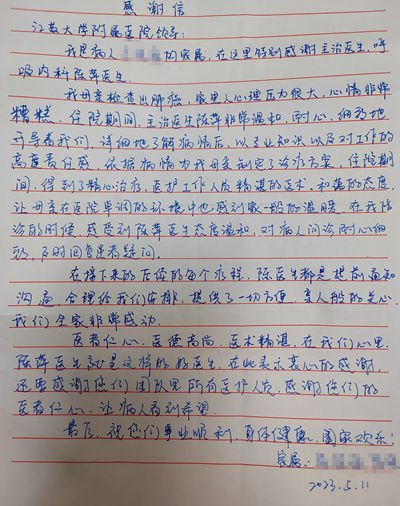 感谢信
江苏大学附属医院领导:
我是病人的家属,在这里特别感谢主治医生,呼
吸内科陈萍医生。
我母亲检查出肺癌,家里人心理压力很大,心情非常
糟糕,住院期间,主治医生陈萍非常温和,耐心,细致地
开导着我们,详细地了解病情后,以专业知识以及对工作的
高度责任感,依据病情为我母亲制定了治疗方案,住院期
间,得到了精心治疗,医护工作人员精湛的医术,和蔼的态度,
让母亲在医院单调的环境中也感到家一般的温暖。在我陪
诊的时候,感受到陈萍医生态度温和,对病人问诊耐心细
致,及时回复患者疑问。
在接下来的后续的每个疗程,陈医生都是提前通知
沟通,合理给我们安排,提供了一切方便,亲人般的关心,
我们全家非常感动。
医者仁心,医德高尚,医术精湛,在我们心里,
陈萍医生就是这样的好医生,在此表示衷心的感谢,
还要感谢你们团队里所有医护人员,感谢您们的
医者仁心,让病人看到希望。
最后,祝您们事业顺利,身体健康,阖家欢乐!
家属:
2023.5.11